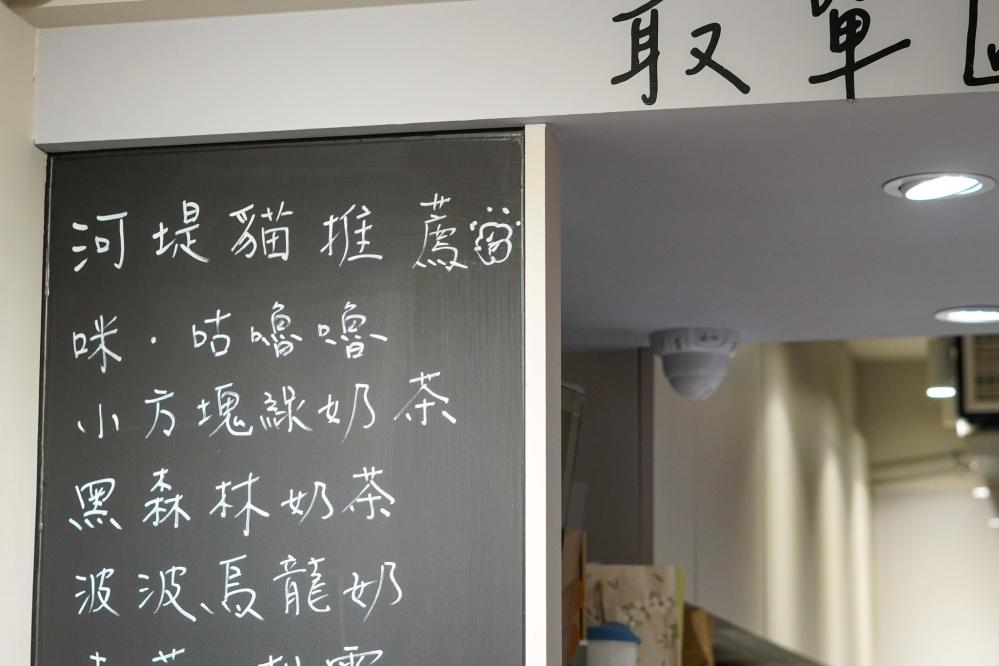 取單
河堤貓推薦
咪·咕嚕嚕
小方塊綠奶茶
黑森林奶茶
波波烏龍奶